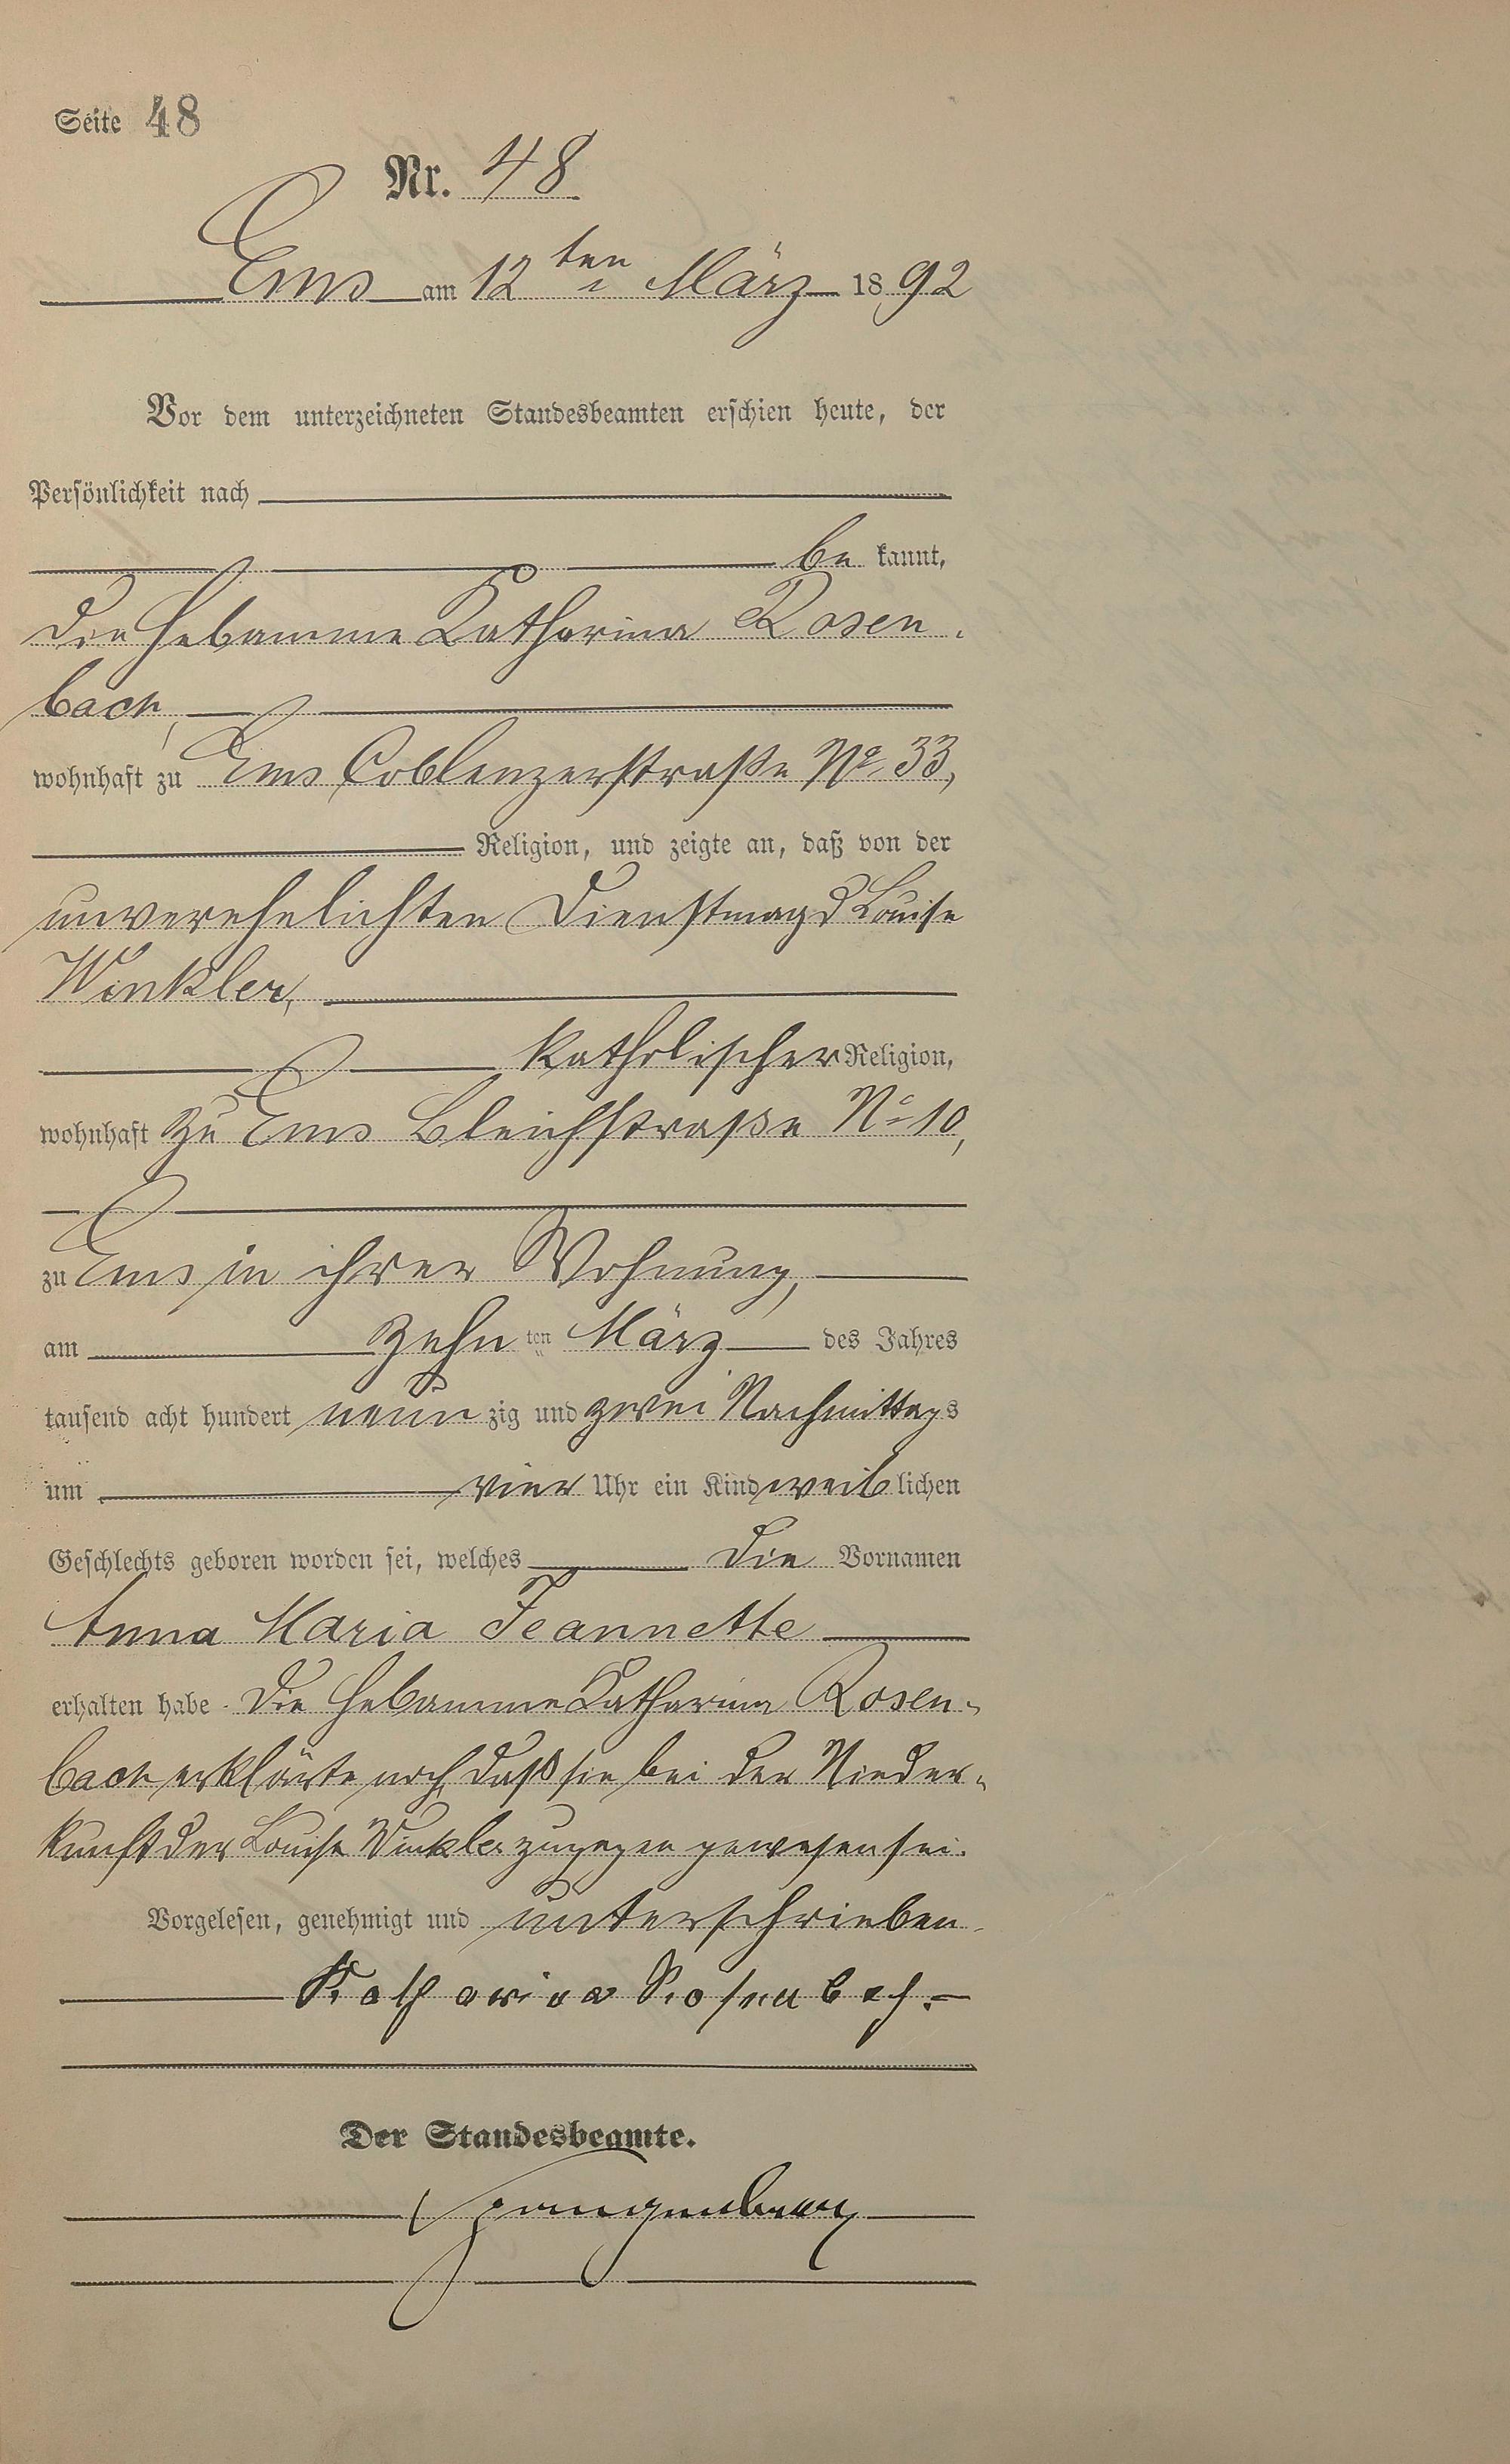 Seite 48
Nr. 48
Ems am 12ten März 1892
Vor dem unterzeichneten Standesbeamten erschien heute, der
Persönlichkeit nach
be kannt,
die Hebamme Katharina Rosen-
bach,
wohnhaft zu Ems Coblenzerstraße No 33,
Religion, und zeigte an, daß von der
unverehelichten Dienstmagd Louise
Winkler,
katholischer Religion,
wohnhaft zu Ems Bleichstraße No 10,
zu Ems in ihrer Wohnung,
am zehn ten März des Jahres
tausend acht hundert neun zig und zwei Nachmittags
um vier Uhr ein Kind weib lichen
Geschlechts geboren worden sei, welches die Vornamen
Anna Maria Jeannette
erhalten habe. Die Hebamme Katharina Rosen-
bach erklärte noch, daß sie bei der Nieder-
kunft der Louise Winkler zugegen gewesen sei.
Vorgelesen, genehmigt und unterschrieben.
Katharina Rosenbach.
Der Standesbeamte.